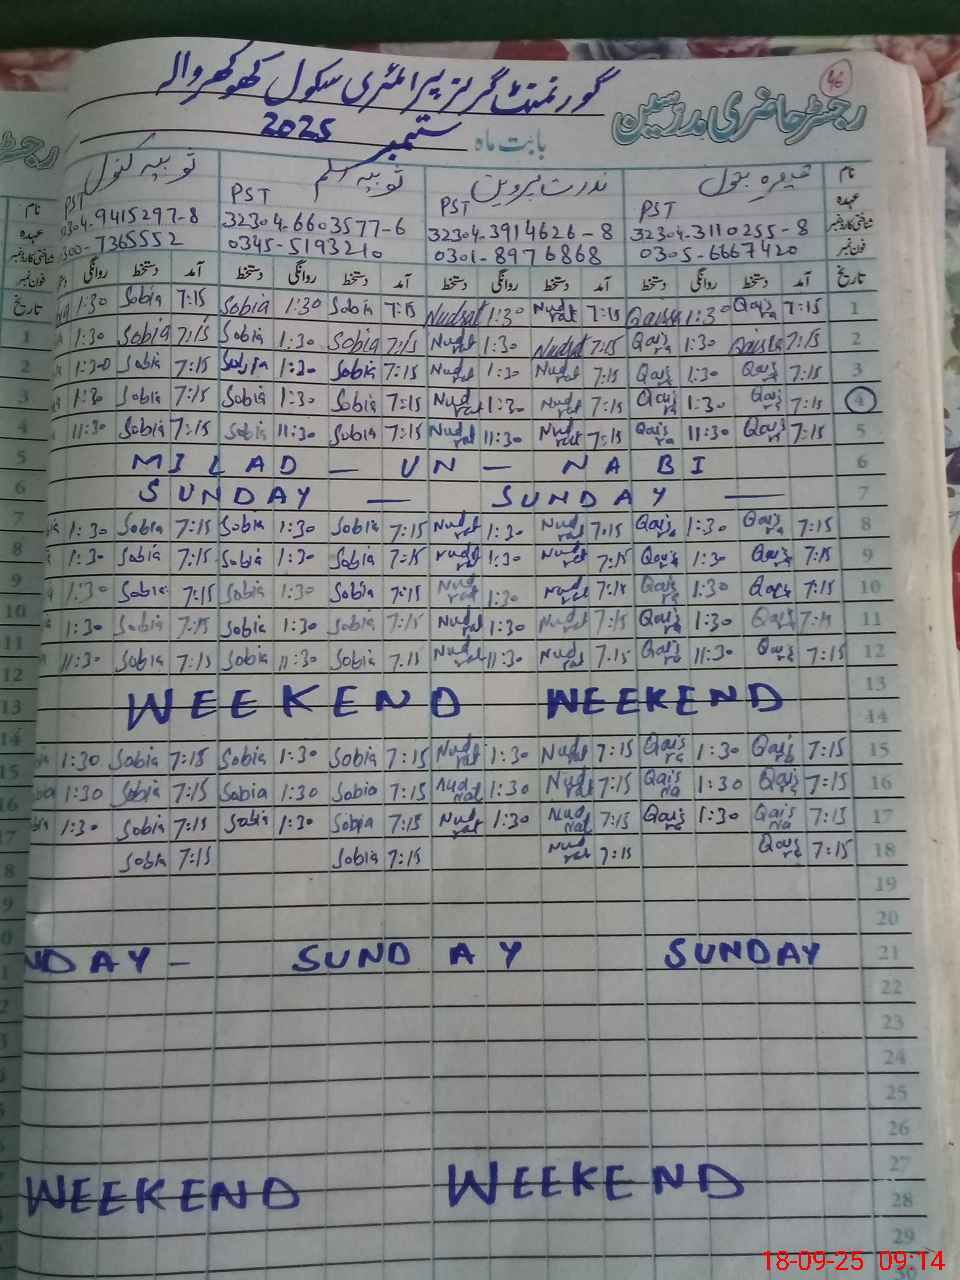 46
گورنمنٹ گرلز پرائمری سکول کھوکھر والہ
رجسٹر حاضری مدرسین
بابت ماہ ستمبر 2025
نام ندرت پروین ثوبیہ ثوبیہ کنول
عہدہ PST PST PST PST
شناختی کارڈ نمبر 32304-3110255-8 32304-3914626-8 32304-6603577-6 0304-9415297-8
فون نمبر 0305-6667420 0301-8976868 0345-5193210 300-7365552
تاریخ آمد دستخط روانگی دستخط آمد دستخط روانگی دستخط آمد دستخط روانگی دستخط آمد دستخط روانگی
1:30 Sobia 7:15 Sobia 1:30 Sobia 7:15 Nudrat 1:30 Nudrat 7:15 Qaisra 1:30 Qaisra 7:15 1
1:30 Sobia 7:15 Sobia 1:30 Sobia 7:15 Nudrat 1:30 Nudrat 7:15 Qaisra 1:30 Qaisra 7:15 2
1:30 Sobia 7:15 Sobia 1:30 Sobia 7:15 Nudrat 1:30 Nudrat 7:15 Qaisra 1:30 Qaisra 7:15 3
1:30 Sobia 7:15 Sobia 1:30 Sobia 7:15 Nudrat 1:30 Nudrat 7:15 Qaisra 1:30 Qaisra 7:15 4
11:30 Sobia 7:15 Sobia 11:30 Sobia 7:15 Nudrat 11:30 Nudrat 7:15 Qaisra 11:30 Qaisra 7:15 5
MILAD — UN — NABI 6
SUNDAY — SUNDAY — 7
1:30 Sobia 7:15 Sobia 1:30 Sobia 7:15 Nudrat 1:30 Nudrat 7:15 Qaisra 1:30 Qaisra 7:15 8
1:30 Sobia 7:15 Sobia 1:30 Sobia 7:15 Nudrat 1:30 Nudrat 7:15 Qaisra 1:30 Qaisra 7:15 9
1:30 Sobia 7:15 Sobia 1:30 Sobia 7:15 Nudrat 1:30 Nudrat 7:15 Qaisra 1:30 Qaisra 7:15 10
1:30 Sobia 7:15 Sobia 1:30 Sobia 7:15 Nudrat 1:30 Nudrat 7:15 Qaisra 1:30 Qaisra 7:15 11
11:30 Sobia 7:15 Sobia 11:30 Sobia 7:15 Nudrat 11:30 Nudrat 7:15 Qaisra 11:30 Qaisra 7:15 12
13
WEEKEND WEEKEND
14
1:30 Sobia 7:15 Sobia 1:30 Sobia 7:15 Nudrat 1:30 Nudrat 7:15 Qaisra 1:30 Qaisra 7:15 15
1:30 Sobia 7:15 Sobia 1:30 Sobia 7:15 Nudrat 1:30 Nudrat 7:15 Qaisra 1:30 Qaisra 7:15 16
1:30 Sobia 7:15 Sobia 1:30 Sobia 7:15 Nudrat 1:30 Nudrat 7:15 Qaisra 1:30 Qaisra 7:15 17
Sobia 7:15 Sobia 7:15 Nudrat 7:15 Qaisra 7:15 18
19
20
NDAY — SUNDAY SUNDAY 21
22
23
24
25
26
27
WEEKEND WEEKEND
28
29
18-09-25 09:14